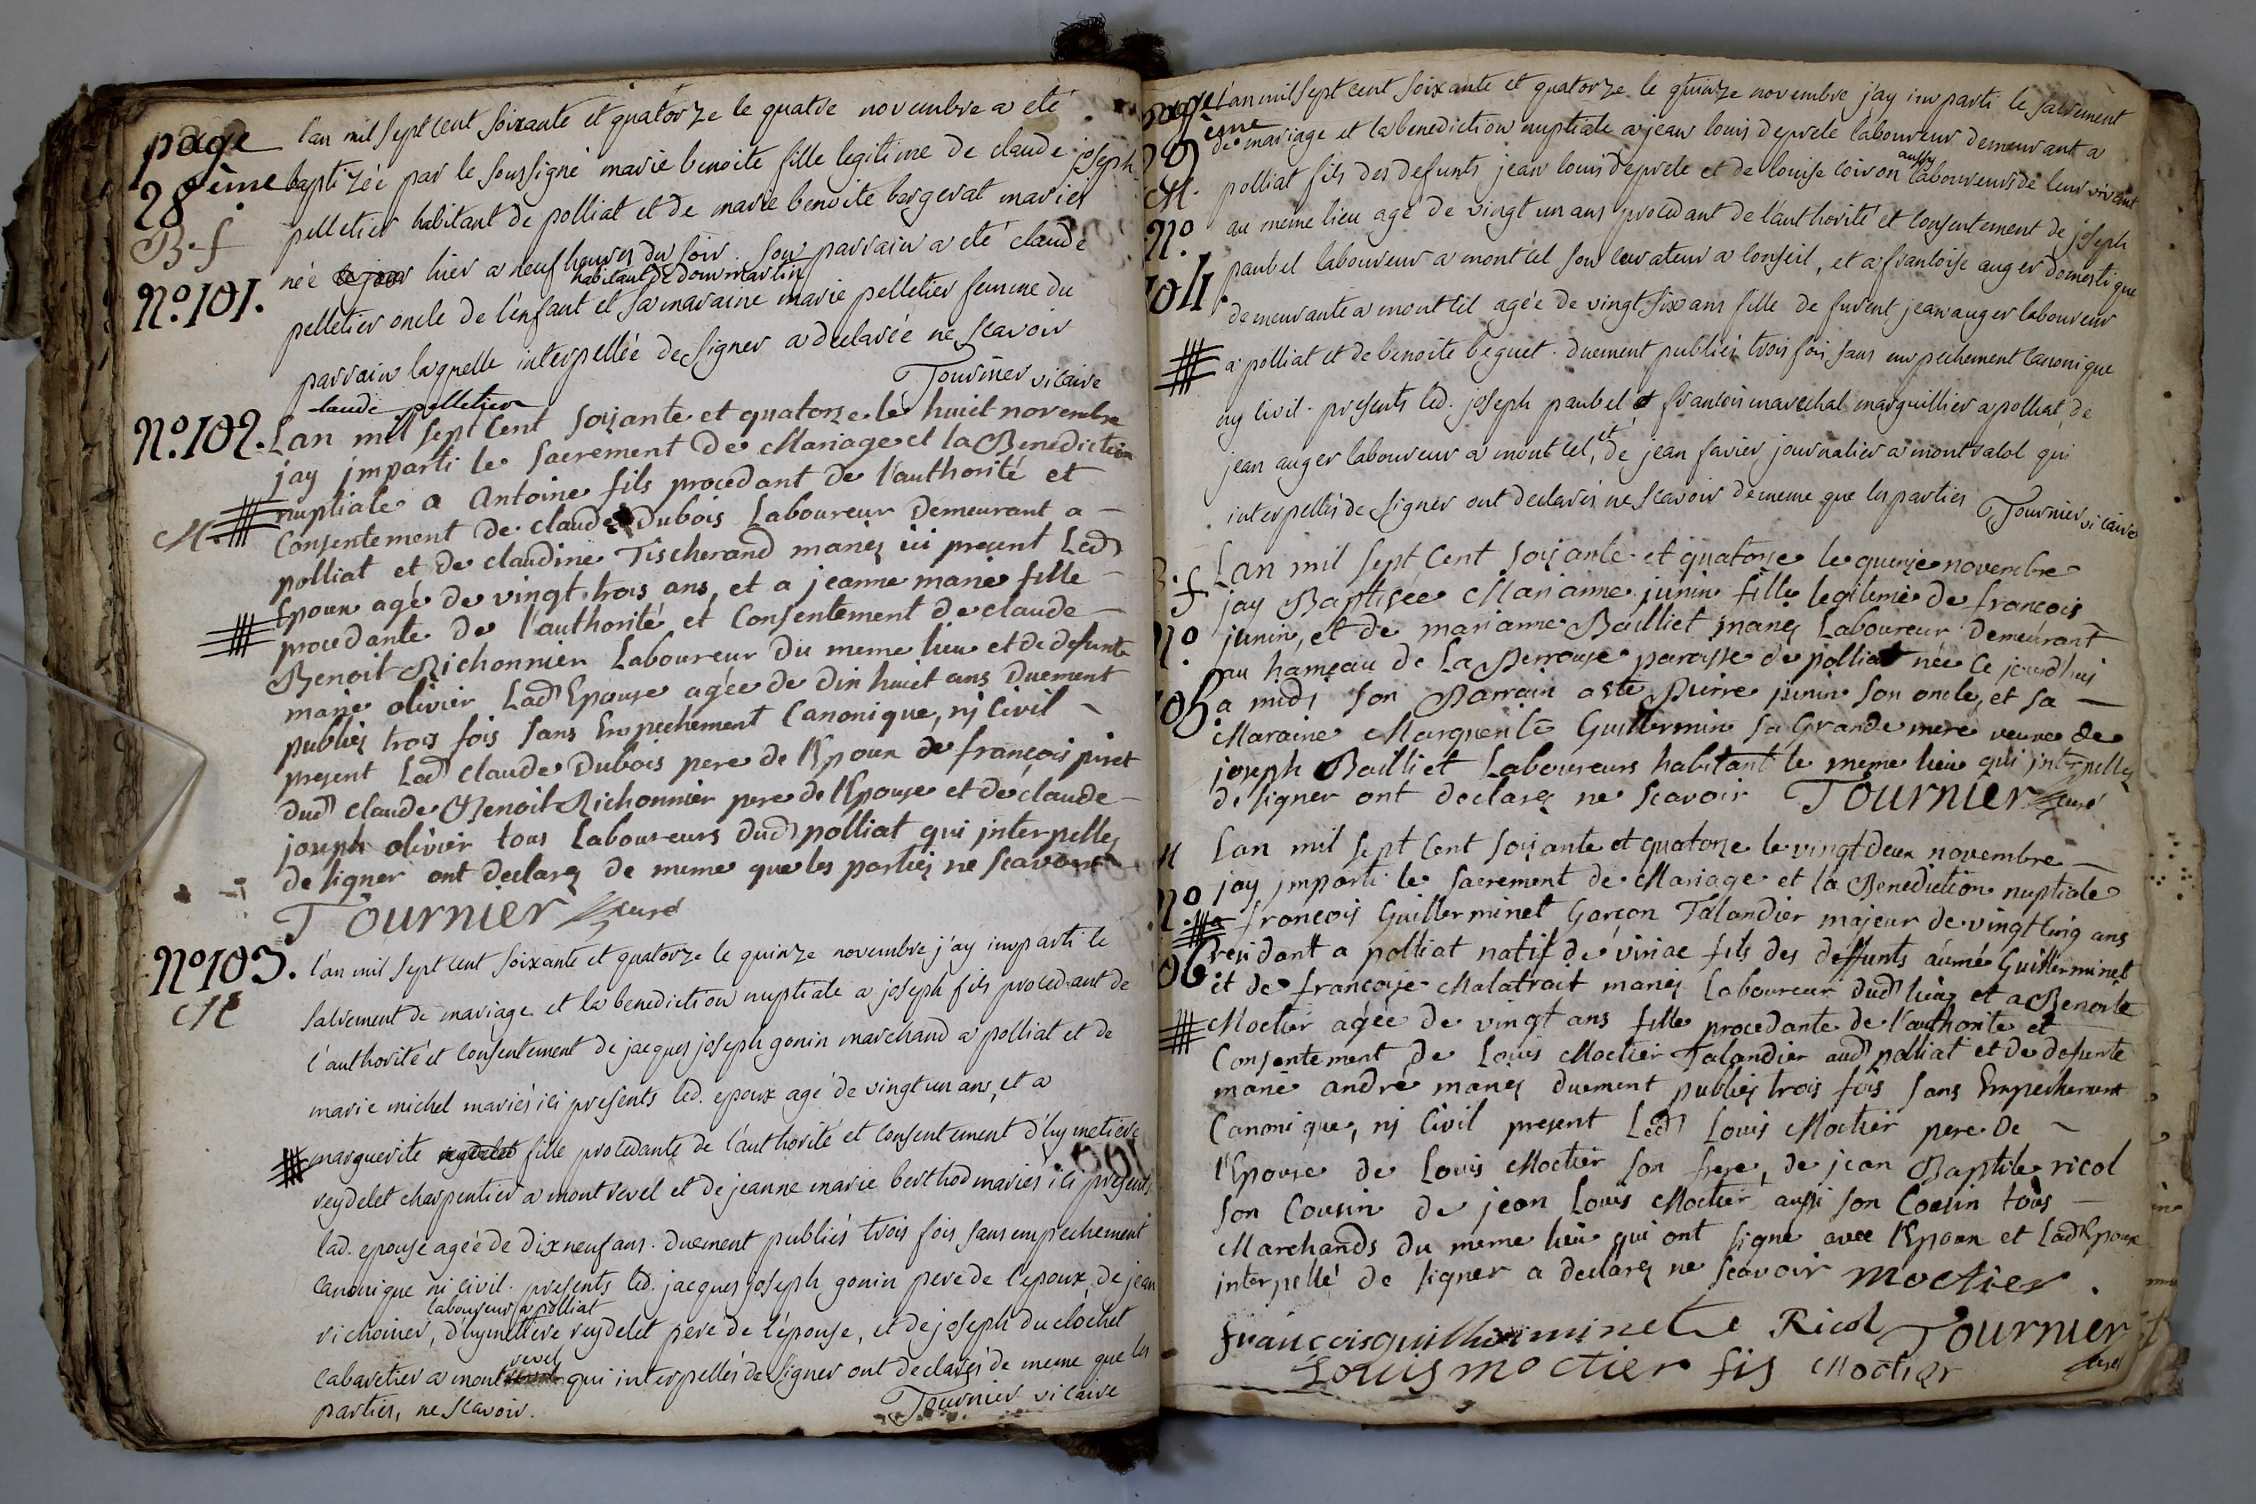 page
28ème
B. f
N°. 101.
l'an mil sept cent soixante et quatorze le quatre novembre a eté
baptizée par le soussigné marie benoite fille legitime de claude joseph
pelletier habitant de polliat et de marie benoite bergerat mariés
née hier a neuf heures du soir. son parrain a eté claude
habitant de dommartin
pelletier oncle de l'enfant et sa maraine marie pelletier femme du
parrain laquelle interpellée de signer a declarée ne scavoir
claude pelletier Tournier vicaire
N°. 102.
M.
Lan mil sept Cent soixante et quatorze le huict novembre
jay jmparti le sacrement de Mariage et la Benediction
nuptiale a Antoine fils procedant de l'authorité et
Consentement de claude Dubois Laboureur Demeurant a
polliat et de claudine Tischerand mariez ici present Led
Epoux agé de vingt trois ans, et a jeanne marie fille
procedante de l'authorité et Consentement de claude
Benoit Richonnier Laboureur du meme lieu et de defunte
marie olivier Lad Epouse agée de dix huict ans Duement
publiez trois fois sans Empechement Canonique, nj Civil
present Led claude Dubois pere de l'Epoux de françois piret
dud claude Benoit Richonnier pere de l'Epouse et de claude
joseph olivier tous Laboureurs dud polliat qui jnterpellez
de signer ont declarez de meme que les parties ne scavoir
Tournier curé
N°103.
M
l'an mil sept cent soixante et quatorze le quinze novembre j'ay imparti le
sacrement de mariage et la benediction nuptiale a joseph fils procedant de
l'authorité et consentement de jacques joseph gonin marchand a polliat et de
marie michel mariés ici présents led. epoux agé de vingt un ans, et a
marguerite reydelet fille procedante de l'authorité et consentement d'hymetiere
reydelet charpentier a montrevel et de jeanne marie berthod mariés ici présents
lad. epouse agée de dix neuf ans. duement publiés trois fois sans empechement
canonique ni civil. présents led. jacques joseph gonin pere de l'epoux, de jean
laboureur a polliat
richonier, d'hymettere reydelet pere de l'épouse, et de joseph duclôchet
revel
cabaretier a mont qui interpellés de signer ont declarés de meme que les
parties, ne scavoir. Tournier vicaire
page
29
ème
M.
N°.
104.
l'an mil sept cent soixante et quatorze le quinze novembre j'ay imparti le sacrement
de mariage et la benediction nuptiale a jean louis deprele laboureur demeurant a
aussy
polliat fils des defunts jean louis deprele et de louise coiron laboureurs de leur vivant
au meme lieu agé de vingt un ans procedant de l'authorité et consentement de joseph
paubel laboureur a mont cel son curateur a conseil, et a francoise auger domestique
demeurante a mont cel agée de vingt six ans fille de furent jean auger laboureur
a polliat et de benoite beguet. duement publiés trois fois sans empechement canonique
ny civil. présents led. joseph paubel et francois marechal marguillier a polliat, de
et
jean auger laboureur a mont cel, de jean favier journalier a mont valol qui
interpellés de signer ont declarés ne scavoir de meme que les parties Tournier vicaire
B. f
N°
105
Lan mil sept Cent soixante et quatorze le quinze novembre
jay Baptisée Marianne junin fille legitime de francois
junin, et de marianne Bailliet mariez Laboureur Demeurant
au hameau de La Perrouse paroisse de polliat née ce jourdhui
a midi son Parrain a eté Pierre junin son oncle, et sa
Maraine Marguerite Guillermin sa Grande mere veuve de
joseph Bailliet Laboureurs habitant le meme lieu qui jnterpellez
de signer ont declarez ne scavoir Tournier curé
M
N°.
106
Lan mil sept Cent soixante et quatorze le vingt deux novembre
jay jmparti le sacrement de Mariage et la Benediction nuptiale
a francois Guillerminet Garcon Talandier majeur de vingt cinq ans
residant a polliat natif de viriac fils des deffunts aimé Guillerminet
et de francoise Malatrait mariez Laboureur dud lieu et a Benoite
Moctier agée de vingt ans fille procedante de l'authorité et
Consentement de Louis Moctier Talandier aud polliat et de defunte
marie andré mariez duement publiez trois fois sans Empechement
Canonique, nj Civil present Led Louis Moctier pere de
l'Epouse de Louis Moctier son frere, de jean Baptiste ricol
son Cousin de jean Louis Moctier aussi son Cousin tous
Marchands du meme lieu qui ont signé avec l'Epoux et Lad Epouse
interpellé de signer a declarez ne scavoir moctier
françois guillierminet Ricol Tournier
Louis moctier fis Moctier curé